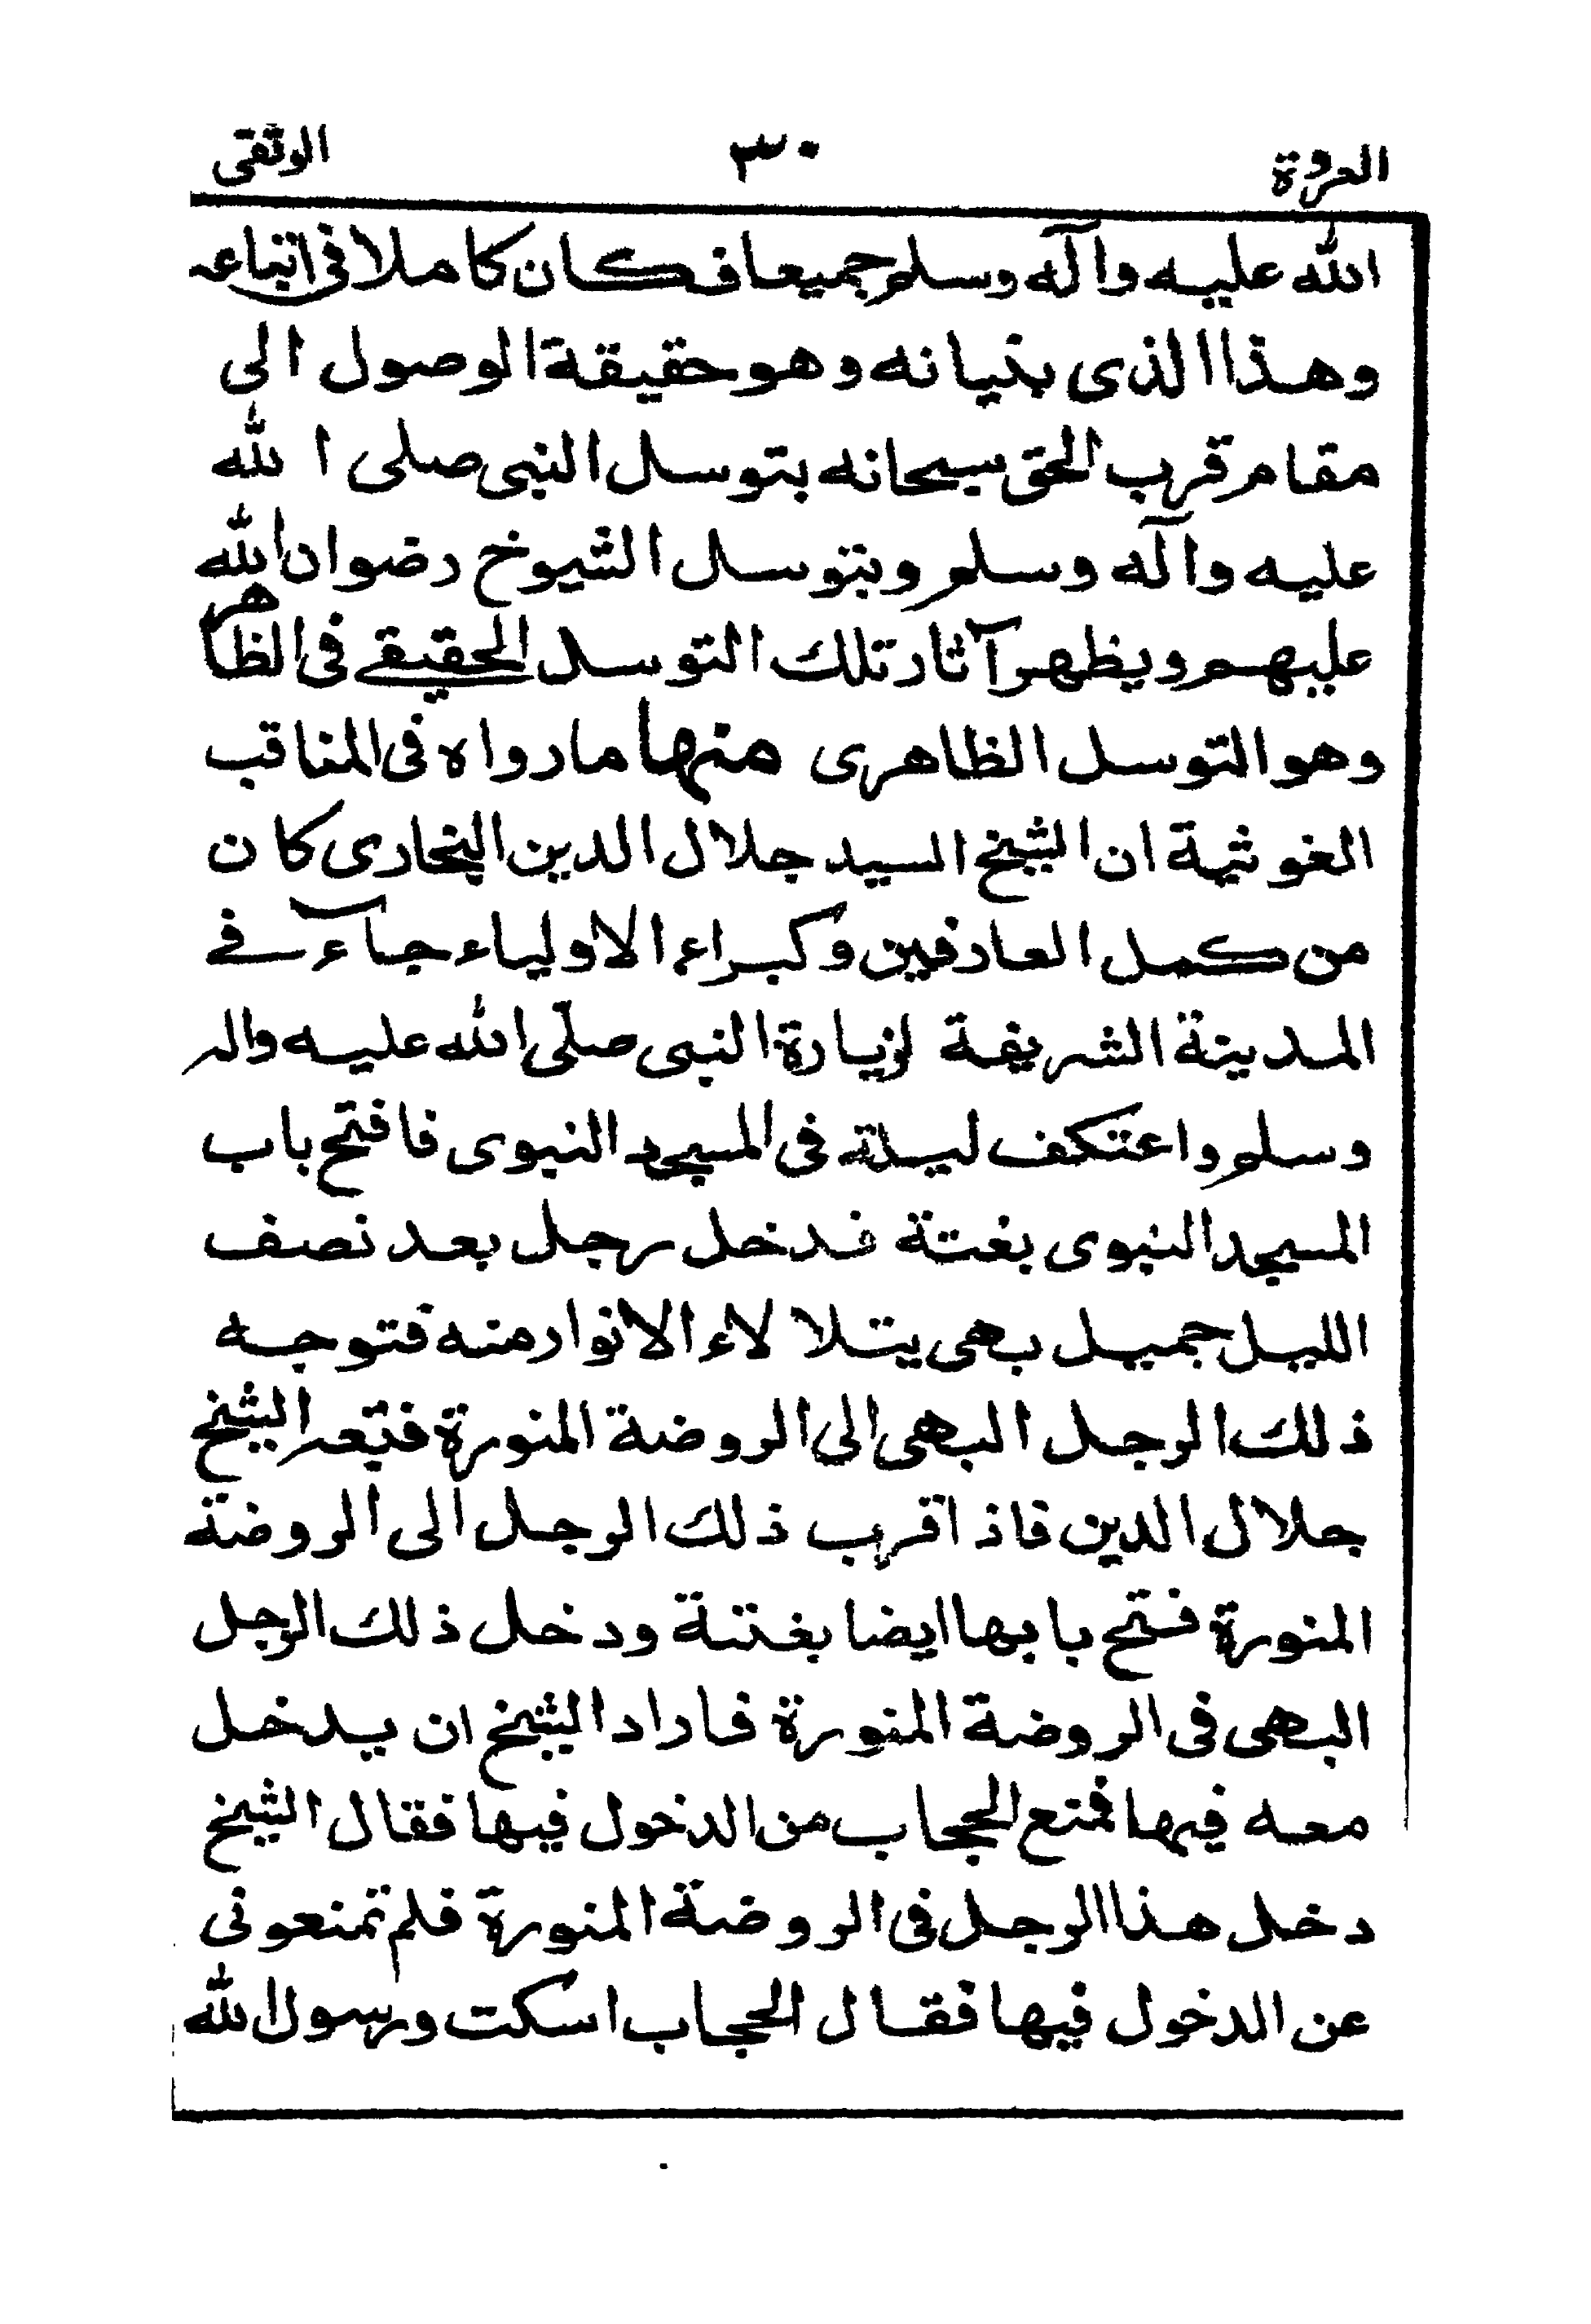 العروة ٣٠ الوثقى
الله عليه وآله وسلم جميعا فكان كاملا في اتباعه
وهذا الذى بنيانه وهو حقيقة الوصول الى
مقام قرب الحق سبحانه بتوسل النبى صلى الله
عليه وآله وسلم وبتوسل الشيوخ رضوان الله
عليهم ويظهر آثار تلك التوسل الحقيقے فى الظاهر
وهو التوسل الظاهرى منها ما رواه فى المناقب
الغوثية ان الشيخ السيد جلال الدين البخارى كان
من كمل العارفين وكبراء الاولياء جآء فے
المدينة الشريفة لزيارة النبى صلّى الله عليه واله
وسلم واعتكف ليلة فى المسجد النبوى فافتح باب
المسجد النبوى بغتة فدخل رجل بعد نصف
الليل جميل بهى يتلالاء الانوار منه فتوجه
ذلك الرجل البهى الى الروضة المنورة فتبعه الشيخ
جلال الدين فاذا قرب ذلك الرجل الى الروضة
المنورة فتح بابها ايضا بغتة ودخل ذلك الرجل
البهى فى الروضة المنورة فاراد الشيخ ان يدخل
معه فيها فمنع الحجاب من الدخول فيها فقال الشيخ
دخل هذا الرجل فى الروضة المنورة فلم تمنعونى
عن الدخول فيها فقال الحجاب اسكت ورسول الله